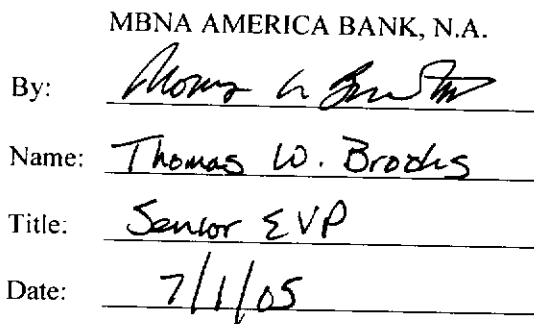 MBNA AMERICA BANK, N.A.
By:
Name: Thomas W. Brooks
Title: Senior EVP
Date: 7/1/05